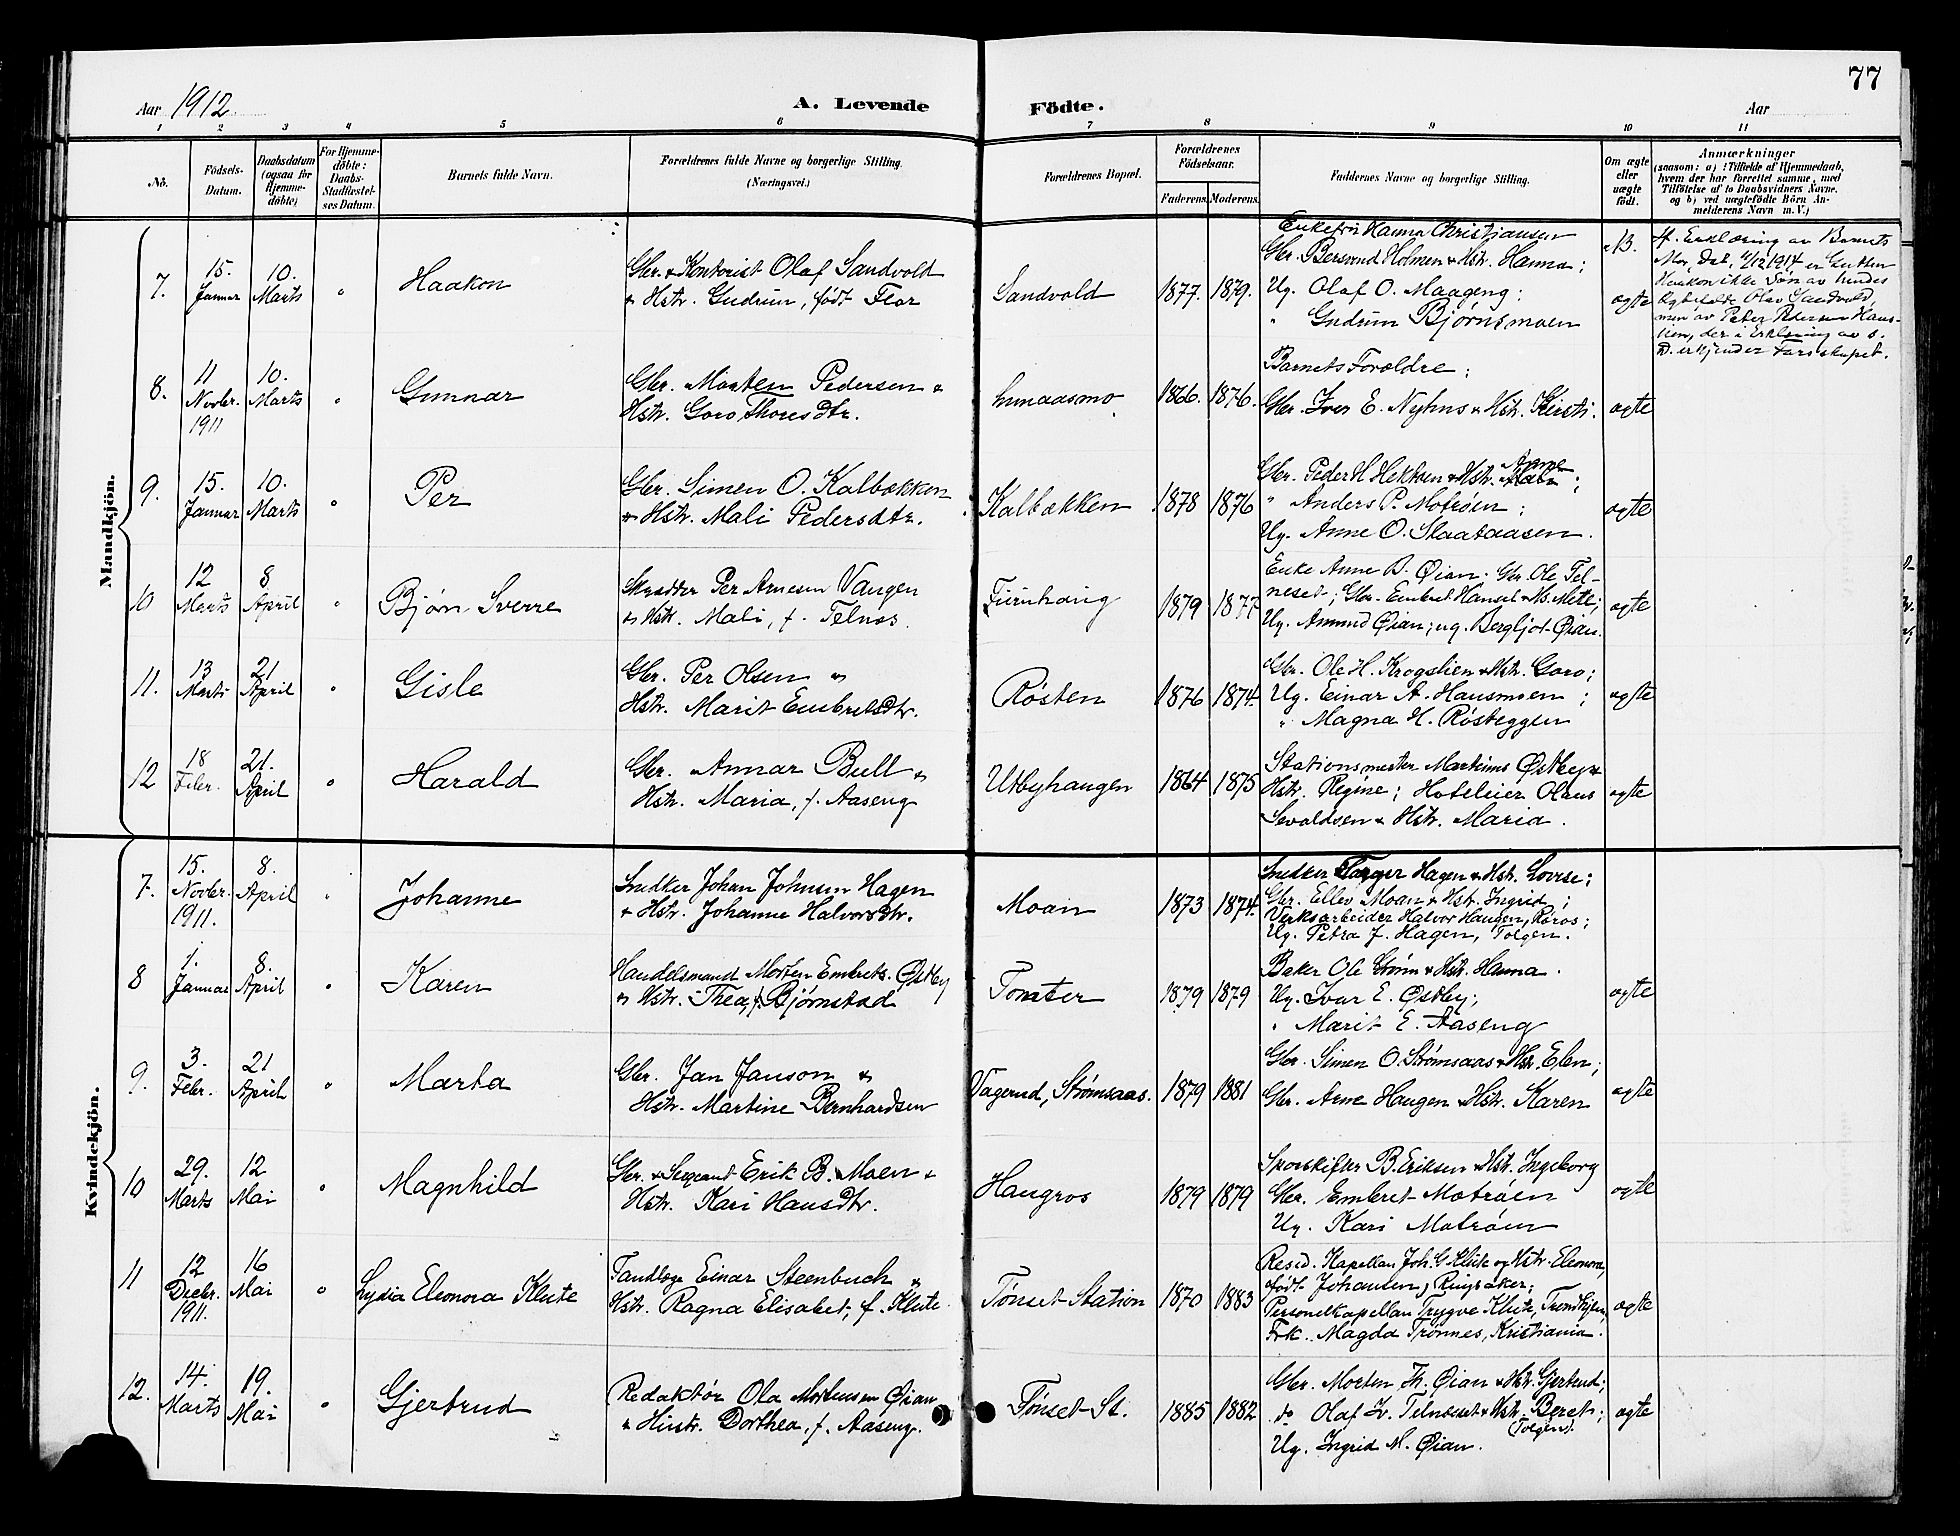 77
Aar 1912
A. Levende Födte.
Aar
1 2 3 4 5 6 7 8 9 10 11
No.
Födsels-
Datum.
Daabsdatum
(ogsaa for
Hjemme-
döbte)
For Hjemme-
döbte:
Daabs-
Stadfæstel-
ses Datum.
Barnets fulde Navn.
Forældrenes fulde Navne og borgerlige Stilling.
(Næringsvei.)
Forældrenes Bopæl.
Forældrenes
Födselsaar.
Faderens. Moderens.
Faddernes Navne og borgerlige Stilling.
Om ægte
eller
uægte
födt.
Anmærkninger
(saasom: a) i Tilfælde af Hjemmedaab,
hvem der har forrettet samme, med
Tilföielse af to Daabsvidners Navne,
og b) ved uægtefödte Börn An-
melderens Navn m. V.)
Mandkjön.
7. 15. Januar 10. Marts " Haakon
Gbr. & Kontorist Olaf Sandvold
& Hstr. Gudrun, født Flor
Sandvold 1877. 1879.
Enkefru Hanna Christiansen
Gbr. Bersvend Holmen & Hstr. Hanna;
Ug. Olaf O. Maageng;
" Gudrun Bjørnsmoen
ægte
N.B. If. Erklæring av Barnets
Mor, dat. 4/12 1914 er Gutten
Haakon ikke Søn av hendes
Ægtefælde Olav Sandvold,
men av Peter Pedersen Haus-
lien, der i Erklæring av s.
D. erkjender Farsskapet.
8. 11 Novbr. 1911 10. Marts " Gunnar
Gbr. Morten Pedersen &
Hstr. Goro Thoresdtr.
1866. 1876.
Barnets Forældre;
Gbr. Iver E. Nyhus & Hstr. Kirsti.
ægte
9. 15. Januar 10. Marts " Per
Gbr. Simen O. Kalbækken
& Hstr. Mali Pedersdtr.
Kalbækken 1878 1876
Gbr. Peder H Hektoen & Hstr. Anne;
" Anders P. Motrøen;
Ug. Anne O. Slaataasen.
ægte
10 12 Marts 8 April " Bjørn Sverre
Skrædder Per Arnesen Vangen
& Hstr. Mali, f. Telnes.
Furuhaug 1879 1877
Enke Anne B. Øian. Gbr. Ole Tel-
neset; Gbr. Embret Hansel & Hs. Mete;
Ug. Amund Øian; ug. Bergljot Øian.
ægte
11. 13 Marts 21 April " Gisle
Gbr. Per Olsen &
Hstr. Marit Embretsdtr.
Røsten 1876 1874.
Gbr. Ole H. Krogslien & Hstr. Goro;
Ug. Einar A. Hausmoen;
" Magna H. Røsteggen
ægte
12 18 Febr. 21. April " Harald
Gbr. Annar Bull &
Hstr. Maria, f. Aaseng
Utbyhaugen 1864 1875
Stationsmester Martinus Østby &
Hstr. Regine; Hoteleier Olaus
Sevaldsen & Hstr. Maria.
ægte
Kvindekjön.
7. 15. Novbr. 1911. 8. April " Johanne
Snedker Johan Johnsen Hagen
& Hstr. Johanne Halvorsdtr.
Moan 1873 1874.
Snedker Hagen & Hstr. Lovise;
Gbr. Ellev Moan & Hstr. Ingrid;
Verksarbeider Halvor Haugen, Røros;
Ug. Petra J. Hagen, Tolgen.
8 1. Januar 8. April " Karen
Handelsmand Morten Embrets. Østby
& Hstr. Thea, f. Bjørnstad
Tomter 1879 1879
Baker Ole Strøm & Hstr. Hanna.
Ug. Ivar E. Østby;
" Marit E. Aaseng
ægte
9. 3. Febr. 21 April " Marta
Gbr. Jan Janson &
Hstr. Martine Bernhardsen
Vagerud, Strømsaas. 1879 1881
Gbr. Simen O. Strømsaas & Hstr. Elen;
Gbr. Arne Haugen & Hstr. Karen
ægte
10 29. Marts 12 Mai " Magnhild
Gbr. & Sergeant Erik B. Moen &
Hstr. Kari Hansdtr.
Haugros 1879 1879
Sporskifter B. Eriksen & Hstr. Ingeborg
Gbr. Embret Motrøen
Ug. Kari Motrøen
ægte
11 12 Decbr. 1911. 16 Mai " Lydia Eleonora Klüte
Tandlæge Einar Steenbuch &
Hstr. Ragna Elisabet, f. Klüte.
Tønset Station 1870 1883
Resid. Kapellan Joh. G Klüte og Hstr. Eleonora,
født Johansen, Ringsaker;
Personelkapellan Trygve Klüte, Trondhjem,
Frk. Magda Trønnes, Kristiania.
ægte
12. 14. Marts 19. Mai " Gjertrud
Redaktør Ola Mortensen Øian
& Hustr. Dorthea, f. Aaseng.
Tønset St. 1885 1882
Gbr. Morten Th. Øian & Hstr. Gjertrud;
do Olaf Iv. Telneset & Hstr. Beret;
(Tolgen).
Ug. Ingrid M. Øian.
ægte